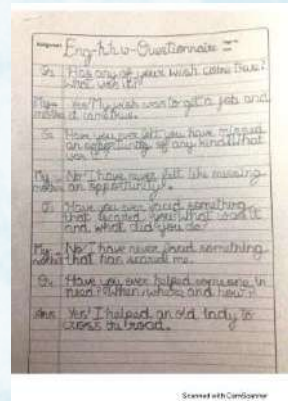 Assignment Eng-h.h.w-Questionnaire
Q1 Has any of your wish come true?
What was it?
My mother Yes! My wish was to get a job and
it came true.
Q2 Have you ever felt you have missed
an opportunity of any kind? What
was
My mother No! I have never felt like missing
an opportunity.
Q3 Have you ever faced something
that scared you? What was it
and what did you do?
My mother No! I have never faced something
that has scared me.
Q4 Have you ever helped someone in
need? When, where and how?
Ans Yes! I helped an old lady to
cross the road.
Scanned with CamScanner